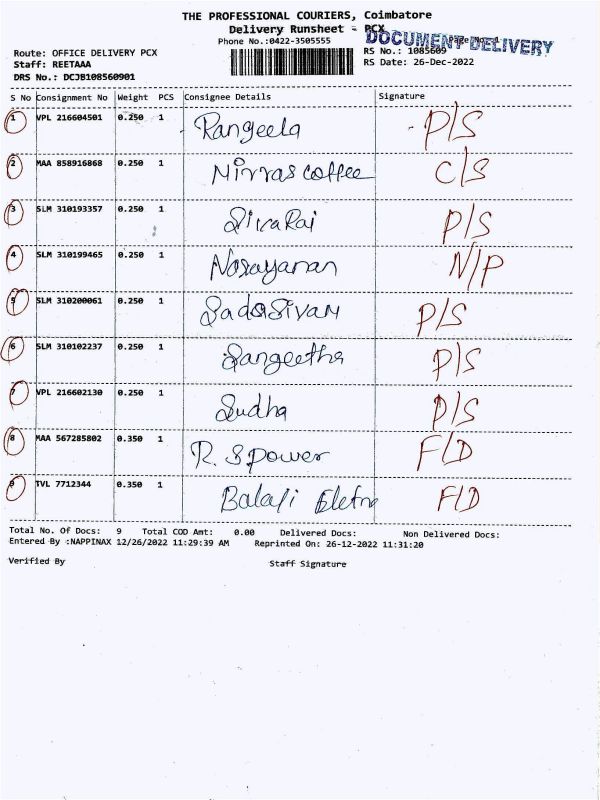 THE PROFESSIONAL COURIERS, Coimbatore
Delivery Runsheet - PCX
Phone No.:0422-3505555 Page No. 1
DOCUMENT DELIVERY
Route: OFFICE DELIVERY PCX RS No.: 1085609
Staff: REETAAA RS Date: 26-Dec-2022
DRS No.: DCJB108560901
S No Consignment No Weight PCS Consignee Details Signature
1 VPL 216604501 0.250 1 Rangeela P/S
2 MAA 858916868 0.250 1 Mirras coffee C/S
3 SLM 310193357 0.250 1 SivaRaj P/S
4 SLM 310199465 0.250 1 Narayanan N/P
5 SLM 310200061 0.250 1 SadaSivam P/S
6 SLM 310102237 0.250 1 Sangeetha P/S
7 VPL 216602130 0.250 1 Sudha P/S
8 MAA 567285802 0.350 1 R. S power F/D
9 TVL 7712344 0.350 1 Balaji F/D
Total No. Of Docs: 9 Total COD Amt: 0.00 Delivered Docs: Non Delivered Docs:
Entered By :NAPPINAX 12/26/2022 11:29:39 AM Reprinted On: 26-12-2022 11:31:20
Verified By Staff Signature